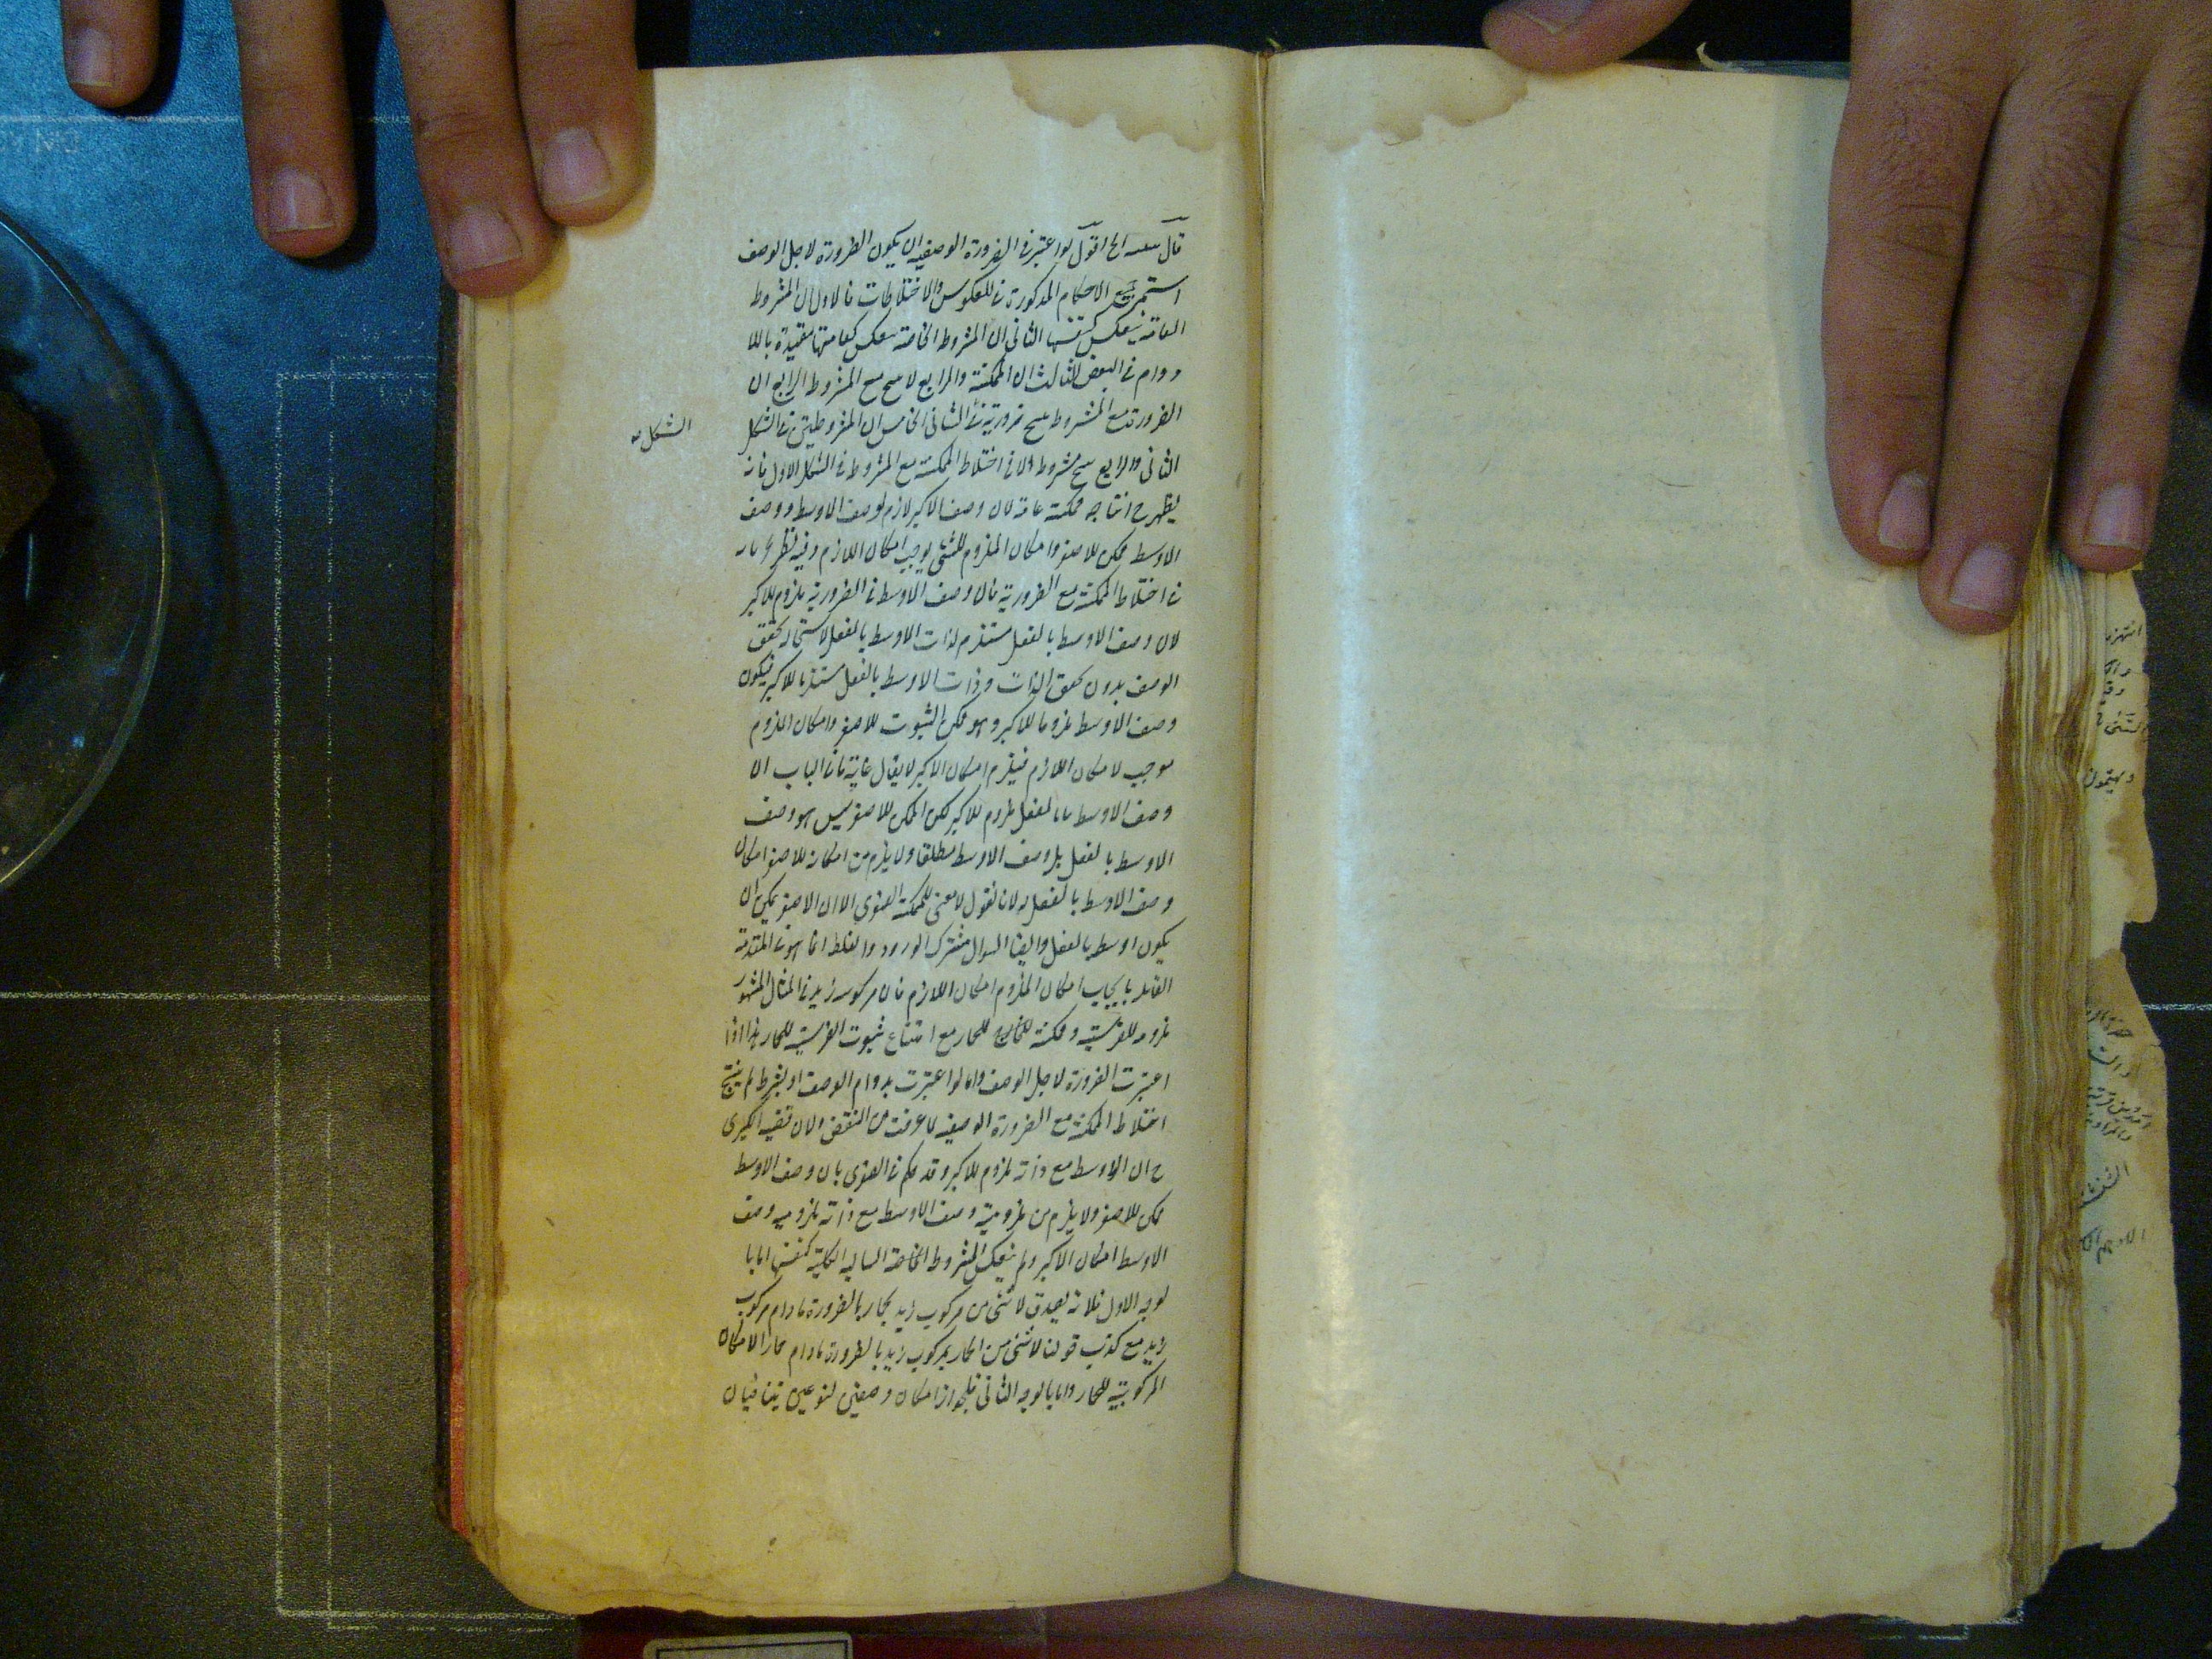 قال بعد الخ اقول لو اعتبر فى الضرورة الوصفية ان يكون الضرورة لاجل الوصف
استمر جميع الاحكام المذكورة فى العكوس والاختلاطات فالاول ان المشروطة
العامة ينعكس كنفسها الثانى ان المشروطة الخاصة ينعكس كعامتها مقيدة باللا
دوام فى البعض الثالث ان الممكنة والرابع لا ينتج مع المشروطة الرابع ان
الضرورية مع المشروطة ينتج ضرورية فى الثانى الخامس ان المشروطتين فى الشكل
الشكل
الثانى والرابع ينتج مشروطة الا فى اختلاط الممكنة مع المشروطة فى الشكل الاول فانه
يظهر ح انتاجه ممكنة عامة لان وصف الاكبر لازم لوصف الاوسط ووصف
الاوسط ممكن للاصغر وامكان الملزوم للشئ يوجب امكان اللازم وفيه نظر
فى اختلاط الممكنة مع الضرورية فان وصف الاوسط فى الضرورية ملزوم للاكبر
لان وصف الاوسط بالفعل مستلزم لذات الاوسط بالفعل لاستحالة تحقق
الوصف بدون تحقق الذات وذات الاوسط بالفعل مستلزما للاكبر فيكون
وصف الاوسط ملزوما للاكبر وهو ممكن الثبوت للاصغر وامكان الملزوم
موجب لامكان اللازم فيلزم امكان الاكبر لا يقال غاية ما فى الباب ان
وصف الاوسط بالفعل ملزوم للاكبر لكن الممكن للاصغر ليس هو وصف
الاوسط بالفعل بل وصف الاوسط مطلقا ولا يلزم من امكانه للاصغر امكان
وصف الاوسط بالفعل له لانا نقول لا معنى للممكنة الصغرى الا ان الاصغر يمكن ان
يكون اوسط بالفعل وايضا السوال مشترك الورود والغلط انما هو فى المقدمة
القائلة بايجاب امكان الملزوم امكان اللازم فان مركوب زيد فى المثال المشهور
ملزومة للفرسية وممكنة للحمار مع امتناع ثبوت الفرسية للحمار هذا اذا
اعتبرت الضرورة لاجل الوصف واما لو اعتبرت بدوام الوصف او بشرط لم ينتج
اختلاط الممكنة مع الضرورة الوصفية لما عرفت من النقض ولان قضية الكبرى
ح ان الاوسط مع ذاته ملزوم للاكبر وقد حكم فى الصغرى بان وصف الاوسط
ممكن للاصغر ولا يلزم من ملزومية وصف الاوسط مع ذاته ملزومية وصف
الاوسط امكان الاكبر ولم ينعكس المشروطة الخاصة السالبة الكلية كنفسها اما با
لوجه الاول فلانه يصدق لا شئ من مركوب زيد بحمار بالضرورة ما دام مركوب
زيد مع كذب قولنا لا شئ من الحمار بمركوب زيد بالضرورة ما دام حمارا لامكان
المركوبية للحمار واما بالوجه الثانى فلجواز امكان وصفين لنوعين تنافيان